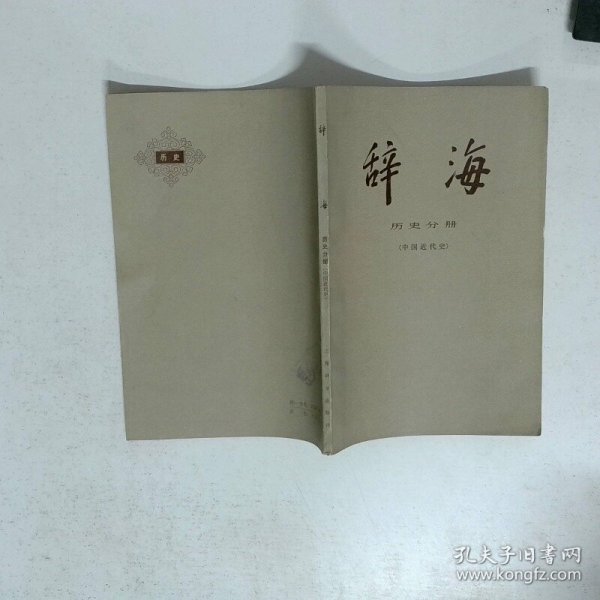 辞海
历史分册
(中国近代史)
辞海 历史分册(中国近代史)
历史
孔夫子旧书网
www.kongfz.com